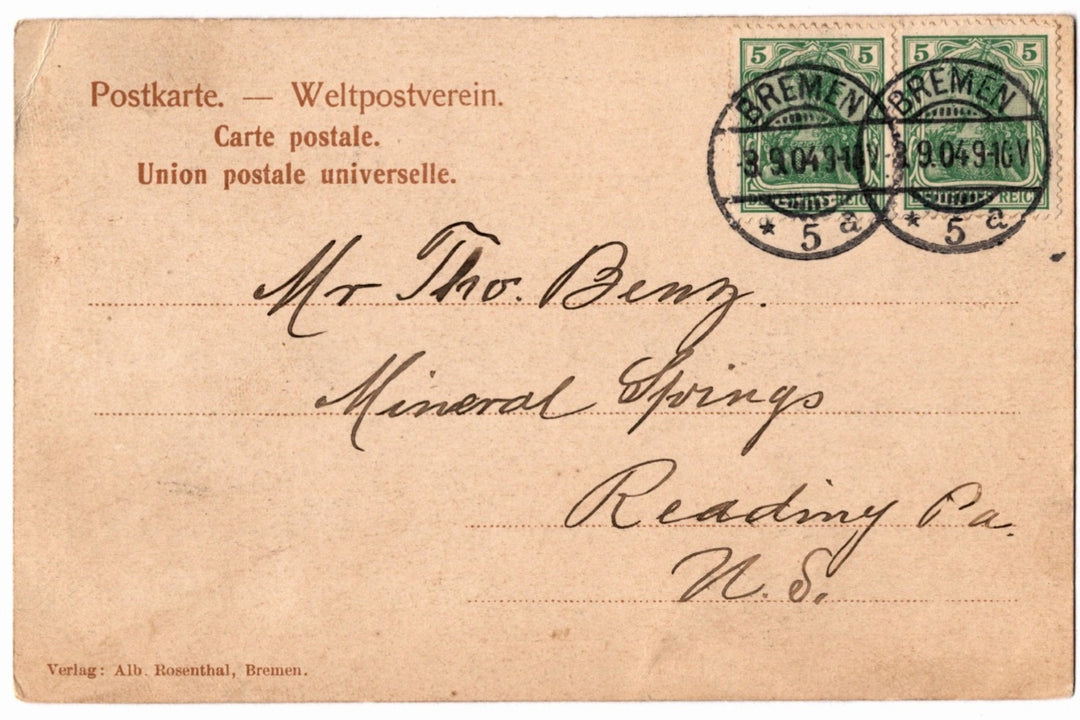 Postkarte. — Weltpostverein.
Carte postale.
Union postale universelle.
5 5
5 5
BREMEN
BREMEN
3.9.04 9-10V
3.9.04 9-10V
DEUTSCHES REICH
DEUTSCHES REICH
* 5 a
* 5 a
Mr Tho. Benz.
Mineral Springs
Reading Pa.
U. S.
Verlag: Alb. Rosenthal, Bremen.